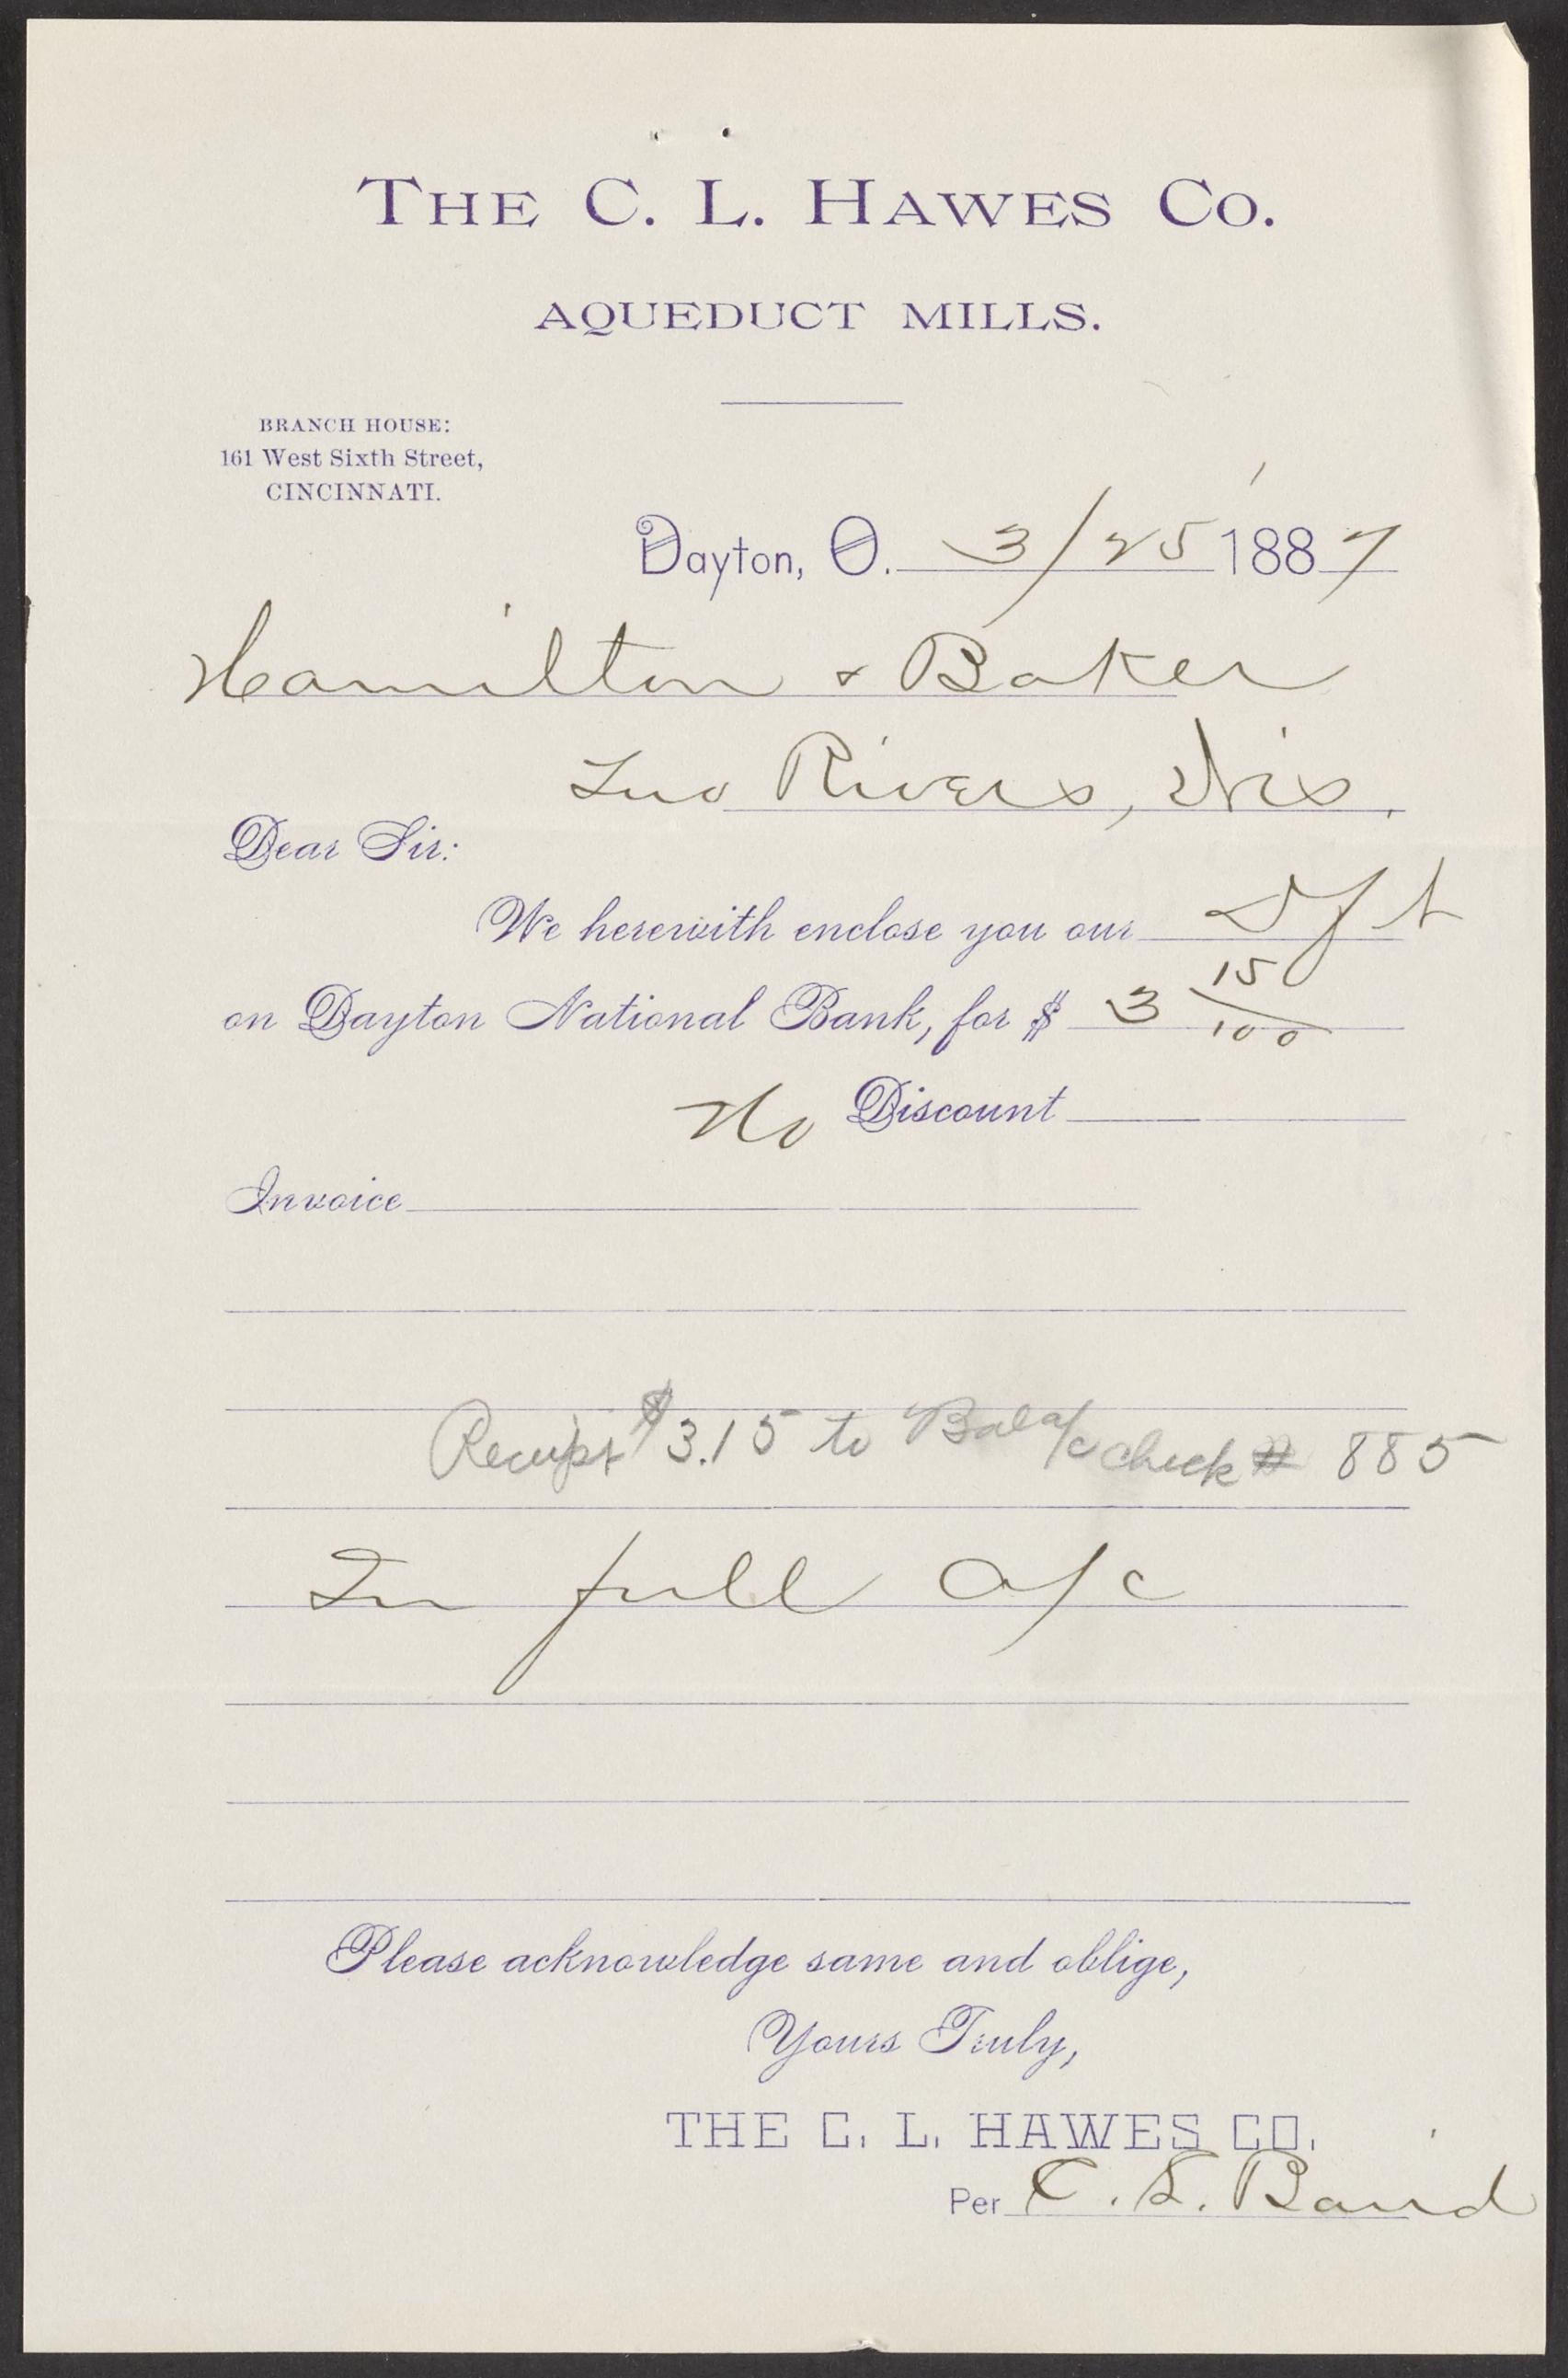 THE C. L. HAWES CO.
AQUEDUCT MILLS.
BRANCH HOUSE:
161 West Sixth Street,
CINCINNATI.
Dayton, O. 3/25 1887
Hamilton & Baker
Two Rivers, Wis.
Dear Sir:
We herewith enclose you our Dft
on Dayton National Bank, for $ 3 15/100
No Discount
Invoice
Receipt $3.15 to Bal a/c check # 885
In full a/c
Please acknowledge same and oblige,
Yours Truly,
THE C. L. HAWES CO.
Per C. S. Baird